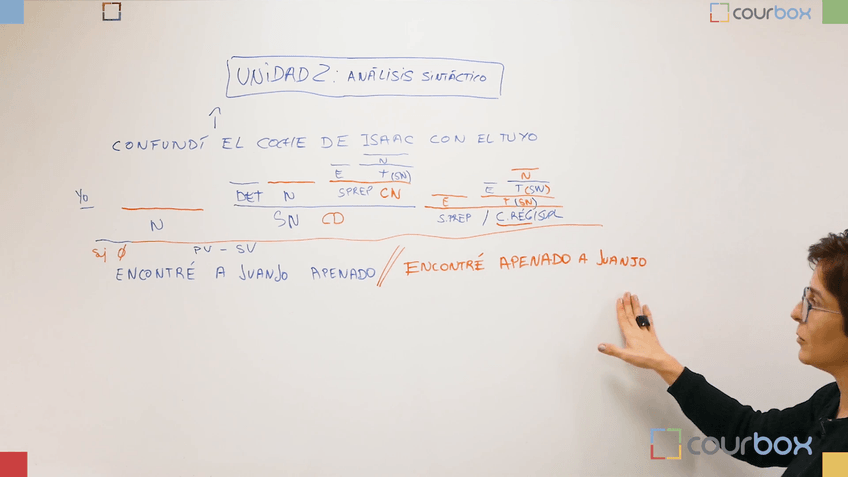 courbox
UNIDAD 2: ANÁLISIS SINTÁCTICO
CONFUNDÍ EL COCHE DE ISAAC CON EL TUYO
N
E T (SN) N
Yo DET N SPREP CN E T (SN)
E T (SN)
N SN CD S.PREP / C. RÉGISUPL
Sj Ø PV - SV
ENCONTRÉ A JUANJO APENADO // ENCONTRÉ APENADO A JUANJO
courbox